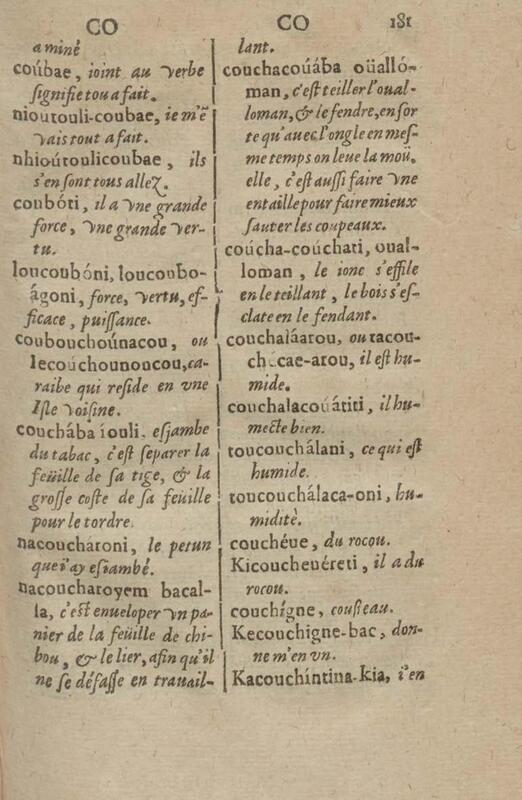 CO
CO
181
a miné
coúbae, ioint au verbe
signifie tou a fait.
nioutouli-coubae, ie m'ẽ
vais tout a fait.
nhioútoulicoubae, ils
s'en sont tous allez.
coubóti, il a vne grande
force, vne grande ver-
tu.
loucoubóni, loucoubo-
ágoni, force, vertu, ef-
ficace, puissance.
coubouchoúnacou, ou
lecoúchounoucou, ca-
raibe qui reside en vne
Isle voisine.
couchába íouli, esjambe
du tabac, c'est separer la
feüille de sa tige, & la
grosse coste de sa feüille
pour le tordre.
nacoucharoni, le petun
que i'ay esiambé.
nacoucharoyem bacal-
la, c'est enueloper vn pa-
nier de la feüille de chi-
bou, & le lier, afin qu'il
ne se défasse en trauail-
lant.
couchacoúába oüalló-
man, c'est teiller l'oual-
loman, & le fendre, en sor
te qu'auec l'ongle en mes-
me temps on leue la moü-
elle, c'est aussi faire vne
entaille pour faire mieux
sauter les coupeaux.
coúcha-coúchati, oual-
loman, le ionc s'effile
en le teillant, le bois s'es-
clate en le fendant.
couchaláarou, ou tacou-
checae-arou, il est hu-
mide.
couchalacoúátiti, il hu-
mecte bien.
toucouchálani, ce qui est
humide.
toucouchálaca-oni, hu-
miditè.
couchéue, du rocou.
Kicoucheuéreti, il a du
rocou.
couchígne, cousteau.
Kecouchigne-bac, don-
ne m'en vn.
Kacouchíntina-kia, i'en